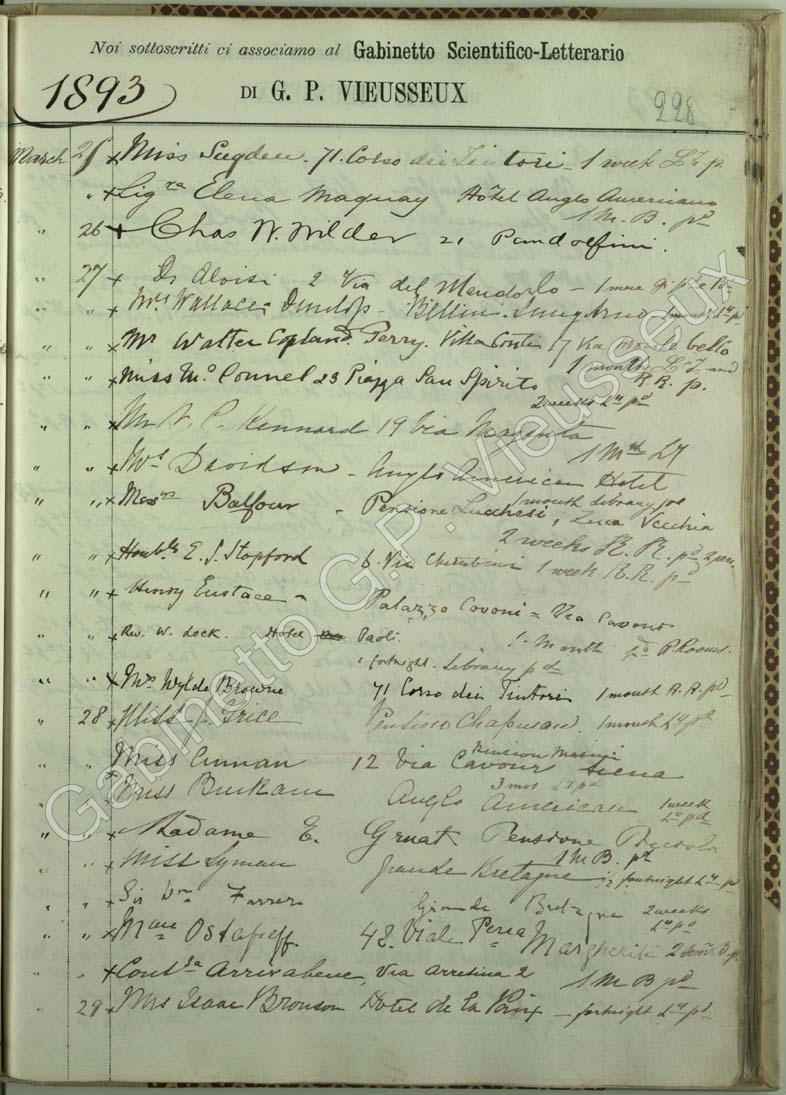 Noi sottoscritti ci associamo al Gabinetto Scientifico-Letterario
1893 DI G. P. VIEUSSEUX 228
March 25 x Miss Sugden. 71. Corso dei Tintori - 1 week Ly p.
" x Sigra Elena Maquay Hotel Anglo Americano
1 M. B. pd
" 26 x Chas W. Wilder 21 Pandolfini.
" 27 x Dr Aloisi 2 Via del Mandorlo - 1
" " x Mrs Wallace Dunlop - Bellini Lung Arno 1 month Ly pd
" " x Mr Walter Copland Perry. Villa Conti 17 Via Montebello
1 month Ly and
" " x Miss Mc Connel 23 Piazza San Spirito R.R. p.
2 weeks Ly pd
x Mr A. P. Kennard 19 Via Magenta
1 Mth Ly
" " x Mrs Davidson - Anglo American Hotel
1 month Library pd
" " x Balfour - Pensione Lucchesi, Zecca Vecchia
2 weeks R. R. pd
" " x Honble E. J. Stopford 6. Via Cherubini 1 week R.R. pd
" " x Henry Eustace - Palazzo Covoni = Via Cavour
" " x Rev. W. Lock. Hotel Paoli. 1. Month pd R. Rooms.
1 fortnight. Library pd
" " x Mrs Wylde Browne 71 Corso dei Tintori 1 month R. R. pd
" 28 x Miss J. Grice Chapman. 1 month Ly pd
Miss 12 Via Cavour Siena
3 mos Ly pd
x Miss Anglo American 1 week
Ly pd
" " x Madame E. Pensione
1 M B. pd
" " x Miss Lyman Grande Bretagne fortnight Ly pd
" " x Sir Wm Farrer Grande Bretagne 2 weeks
Ly pd
" " x Mme Ostafieff 48. Viale Pssa Margherita 2 B p.
" x Contssa Arrivabene, Via Arretina 2
1 M B pd
" 29 x Mrs Isaac Bronson Hotel de la Paix - fortnight Ly pd
Gabinetto G.P. Vieusseux